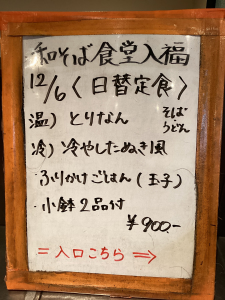 和そば食堂入福
12/6〈日替定食〉
温）とりなん
冷）冷やしたぬき風
そば
うどん
・ふりかけごはん（玉子）
・小鉢2品付
¥900-
＝入口こちら⇒